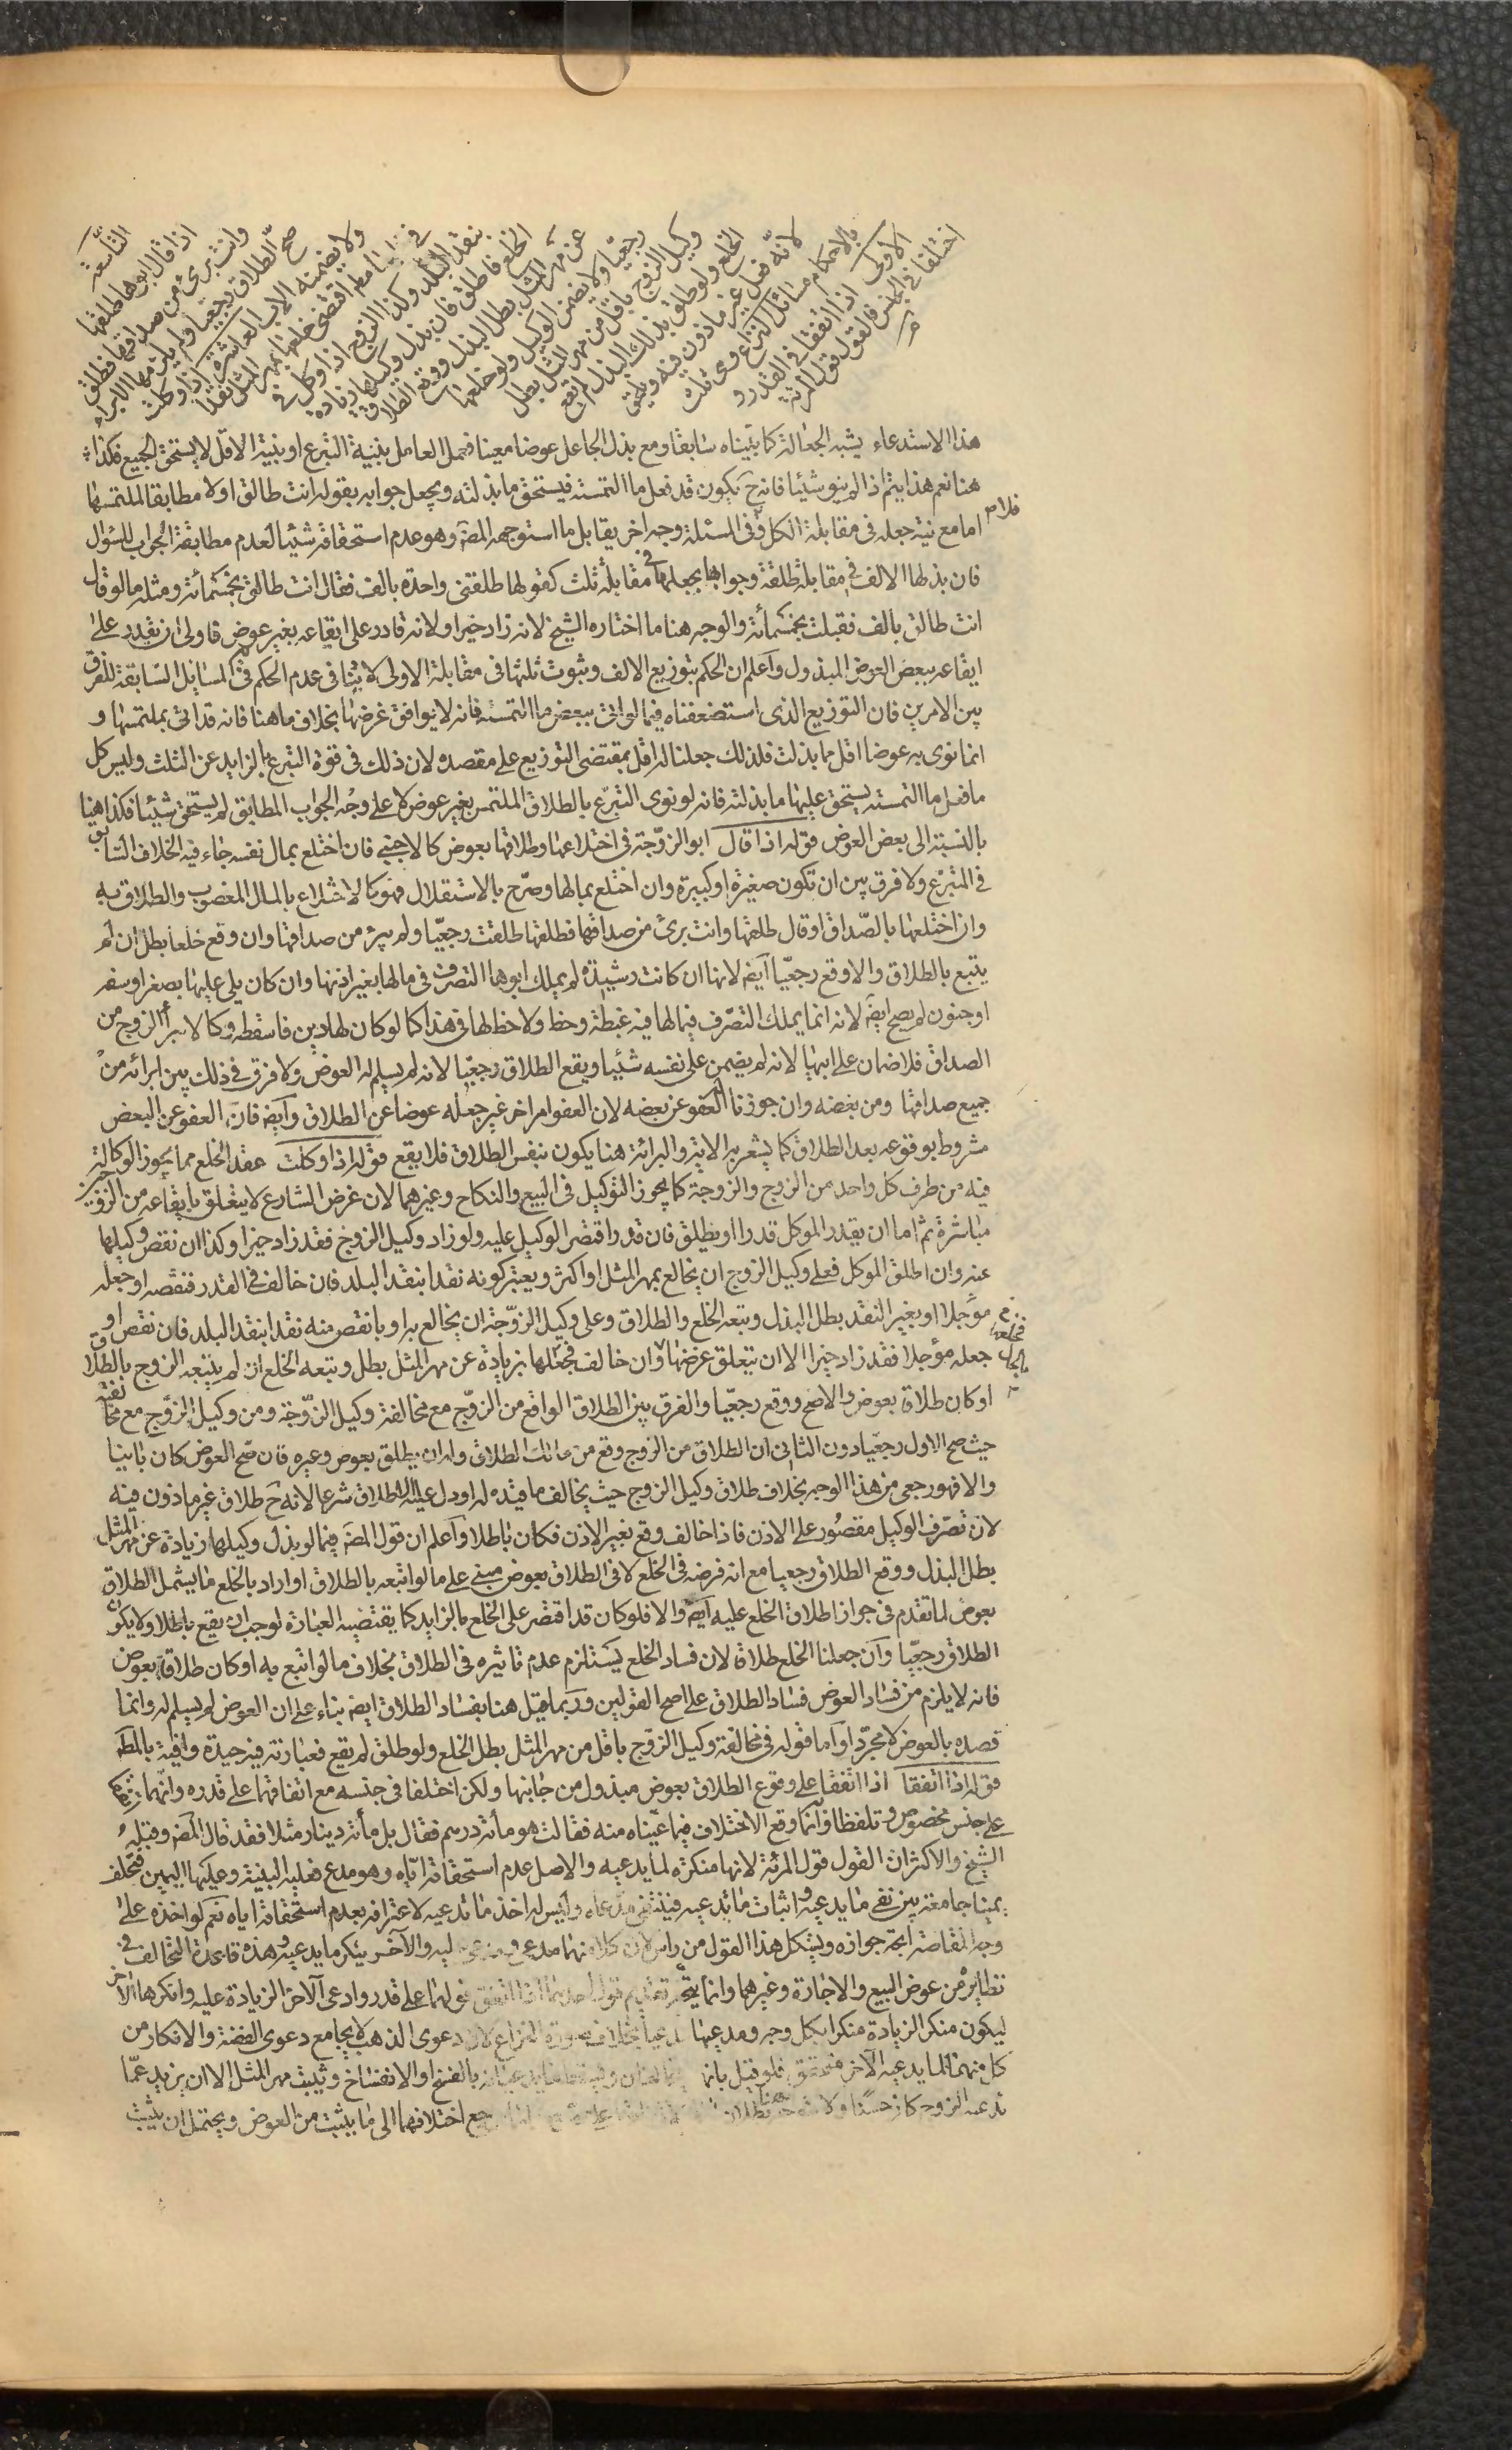 التاسعة
اذا قال ابوها طلقها
وانت برئ من صداقها فطلق
صح الطلاق رجعيا ولم يلزمها الابراء
ولا يضمنه الاب العاشرة اذا وكلت
في خلعها مطلقا اقتضى خلعها بمهر المثل نقدا
بنقد البلد وكذا الزوج اذا وكل في
الخلع فاطلق فان بذل وكيلها زيادة
عن مهر المثل بطل البذل ووقع الطلاق
رجعيا ولا يضمن الوكيل ولو خلعها
وكيل الزوج باقل من مهر المثل بطل
الخلع ولو طلق بذلك البذل لم يقع
لانه فعل غير ماذون فيه ويلحق
بالاحكام مسائل النزاع وهي ثلث
الاولى اذا اتفقا في القدر و
اختلفا في الجنس فالقول قول المرئة
هذا الاستدعاء يشبه الجعالة كما بيناه سابقا ومع بذل الجاعل عوضا معينا فعمل العامل بنية التبرع او بنية الاقل لا يستحق الجميع فكذا
هنا نعم هذا يتم اذا لم ينو شيئا فانه ح يكون قد فعل ما التمسته فيستحق ما بذلته ويجعل جوابه بقوله انت طالق اولا مطابقا لملتمسها
اما مع نية جعله في مقابلة الكل فلا وفى المسئلة وجه اخر يقابل ما استوجهه المصَ وهو عدم استحقاقه شيئا لعدم مطابقة الجواب للسؤال
فان بذلها الالف في مقابلة طلقة وجوابها بجعلها في مقابلة ثلث كقولها طلقني واحدة بالف فقال انت طالق بخمسمائة ومثله ما لو قال
انت طالق بالف فقبلت بخمسمأئة والوجه هنا ما اختاره الشيخ لانه زاد خيرا ولانه قادر على ايقاعه بغير عوض فاولى ان يقدر على
ايقاعه ببعض العوض المبذول واعلم ان الحكم بتوزيع الالف وثبوت ثلثها في مقابلة الاولى لا ينافى عدم الحكم في المسائل السابقة للفرق
بين الامرين فان التوزيع الذى استضعفناه فيما لو اتى ببعض ما التمسته فانه لا يوافق غرضها بخلاف ما هنا فانه قد اتى بملتمسها و
انما نوى به عوضا اقل مما بذلت فلذلك جعلنا له اقل بمقتضى التوزيع على مقصده لان ذلك في قوة التبرع بالزايد عن الثلث وليس كل
ما فعل ما التمسته يستحق عليها ما بذلته فانه لو نوى التبرع بالطلاق الملتمس بغير عوض لا على وجه الجواب المطابق لم يستحق شيئا فكذا هنا
بالنسبة الى بعض العوض قوله اذا قال ابو الزوجة في اختلاعها وطلاقها بعوض كالاجنبي فان اختلع بمال نفسه جاء فيه الخلاف السابق
في المتبرع ولا فرق بين ان تكون صغيرة او كبيرة وان اختلع بمالها وصرح بالاستقلال فهو كالاختلاع بالمال المغصوب والطلاق به
وان اختلعها بالصداق او قال طلقها وانت برئ من صداقها فطلقها طلقت رجعيا ولم يبرء من صداقها وان وقع خلعا بطل ان لم
يتبع بالطلاق والا وقع رجعيا ايضَ لانها ان كانت رشيدة لم يملك ابوها التصرف في مالها بغير اذنها وان كان يلى عليها بصغر او سفه
او جنون لم يصح ايضَ لانه انما يملك التصرف فيما لها فيه غبطة وحظ ولا حظ لها في هذا كما لو كان لها دين فاسقطه وكما لا يبرأ الزوج من
الصداق فلا ضمان على ابيها لانه لم يضمن على نفسه شيئا ويقع الطلاق رجعيا لانه لم يسلم له العوض ولا فرق في ذلك بين ابرائه من
جميع صداقها ومن بعضه وان جوزنا له العفو عن بعضه لان العفو امر اخر غير جعله عوضا عن الطلاق وايضَ فان العفو عن البعض
مشروط بوقوعه بعد الطلاق كما يشعر به الاية والبرائة هنا يكون بنفس الطلاق فلا يقع قوله اذا وكلت عقد الخلع مما يجوز الوكالة
فيه من طرف كل واحد من الزوج والزوجة كما يجوز التوكيل في البيع والنكاح وغيرهما لان غرض الشارع لا يتعلق بايقاعه من الزوجين
مباشرة ثم اما ان يقدر الموكل قدرا او يطلق فان قدر اقتصر الوكيل عليه ولو زاد وكيل الزوج فقد زاد خيرا وكذا ان نقص وكيلها
عنه وان اطلق الموكل فعلى وكيل الزوج ان يخالع بمهر المثل او اكثر ويعتبر كونه نقدا بنقد البلد فان خالف في القدر فنقصه او جعله
مؤجلا او بغير النقد بطل البذل وتبعه الخلع والطلاق وعلى وكيل الزوجة ان يخالع به او بانقص منه نقدا بنقد البلد فان نقص او
جعله مؤجلا فقد زاد خيرا الا ان يتعلق غرضها وان خالف فجعلها بزيادة عن مهر المثل بطل وتبعه الخلع ان لم يتبعه الزوج بالطلاق
او كان طلاق بعوض والا صح ووقع رجعيا والفرق بين الطلاق الواقع من الزوج مع مخالفة وكيل الزوجة ومن وكيل الزوج مع مخالفته
حيث صح الاول رجعيا دون الثاني ان الطلاق من الزوج وقع من مالك الطلاق وله ان يطلق بعوض وغيره فان صح العوض كان باينا
والا فهو رجعى من هذا الوجه بخلاف طلاق وكيل الزوج حيث يخالف ما قيده له او دل عليه الاطلاق شرعا لانه ح طلاق غير ماذون فيه
لان تصرف الوكيل مقصور على الاذن فاذا خالف وقع بغير الاذن فكان باطلا واعلم ان قول المصَ فيما لو بذل وكيلها زيادة عن مهر المثل
بطل البذل ووقع الطلاق رجعيا مع انه فرضه في الخلع لا في الطلاق بعوض مبني على ما لو اتبعه بالطلاق او اراد بالخلع ما يشمل الطلاق
بعوض لما تقدم في جواز اطلاق الخلع عليه ايضَ والا فلو كان قد اقتصر على الخلع بالزايد كما يقتضيه العبارة لوجب ان يقع باطلا ولا يكون
الطلاق رجعيا وان جعلنا الخلع طلاقا لان فساد الخلع يستلزم عدم تاثيره في الطلاق بخلاف ما لو اتبع به او كان طلاقا بعوض
فانه لا يلزم من فساد العوض فساد الطلاق على اصح القولين وربما قيل هنا بفساد الطلاق ايضَ بناء على ان العوض لم يسلم له وانما
قصده بالعوض لا مجردا واما قوله في مخالفة وكيل الزوج باقل من مهر المثل بطل الخلع ولو طلق لم يقع فعبارته فيه جيدة وافية بالمطَ
قوله اذا اتفقا اذا اتفقا على وقوع الطلاق بعوض مبذول من جانبها ولكن اختلفا في جنسه مع اتفاقهما على قدره وانهما
على جنس مخصوص وتلفظا وانما وقع الاختلاف فيما عيناه منه فقالت هو مأئة درهم فقال بل مأئة دينار مثلا فقد قال المصَ وقبله
الشيخ والاكثر ان القول قول المرئة لانها منكرة لما يدعيه والاصل عدم استحقاقه اياه وهو مدع فعليه البينة وعليها اليمين فتحلف
يمينا جامعة بين نفى ما يدعيه واثبات ما تدعيه فينتفى مدعاه وليس له اخذ ما تدعيه لاعترافه بعدم استحقاقه اياه نعم لو اخذه على
وجه المقاصة اتجه جوازه ويشكل هذا القول من راس لان كلا منهما مدع ومدعى عليه والاخر ينكر ما يدعيه وهذه قاعدة التحالف في
نظايره من عوض البيع والاجارة وغيرهما وانما يتجه تقديم قول احدهما اذا اتفق قولهما على قدر وادعى الاخر الزيادة عليه وانكرها الاخر
ليكون منكر الزيادة منكرا بكل وجه ومدعيها مدعيا بخلاف صورة النزاع لان دعوى الذهب لا يجامع دعوى الفضة والانكار من
كل منهما لما يدعيه الاخر متحقق فلو قيل بانهما يتحالفان ... ما يدعيانه بالفسخ او الانفساخ ويثبت مهر المثل الا ان يزيد عما
يدعيه الزوج كان حسنا ولا يتوجه هنا بطلان ... يرجع اختلافهما الى ما يثبت من العوض ويحتمل ان يثبت